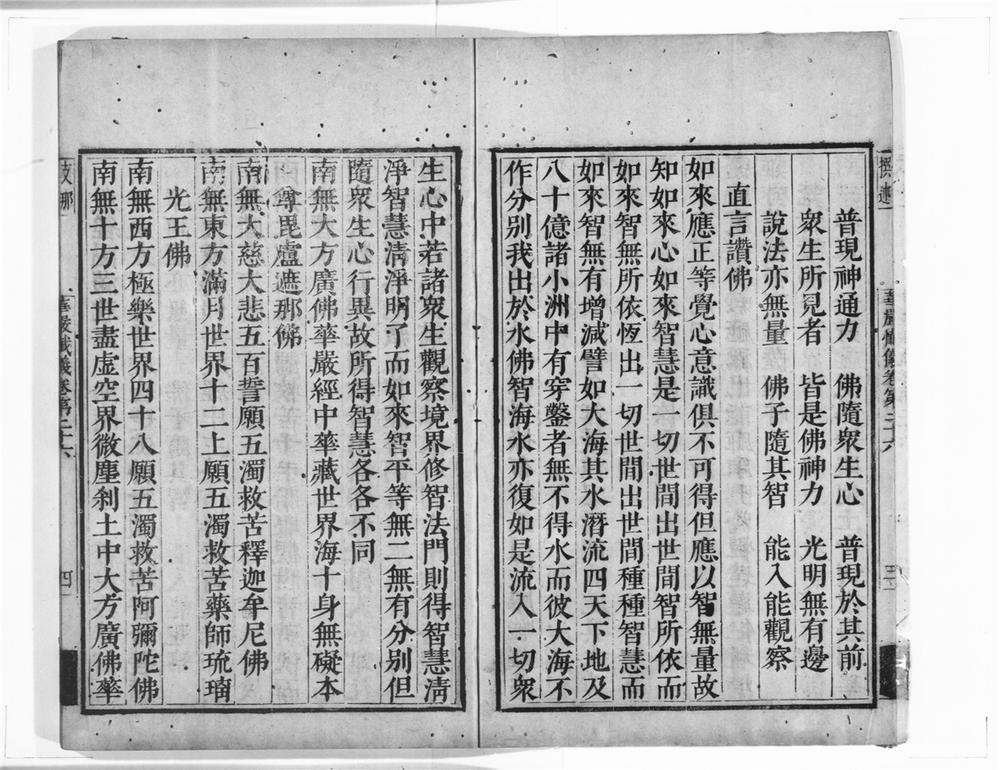 普現神通力　佛隨眾生心　普現於其前
眾生所見者　皆是佛神力　光明無有邊
說法亦無量　佛子隨其智　能入能觀察
直言讚佛
如來應正等覺心意識俱不可得但應以智無量故
知如來心如來智慧是一切世間出世間智所依而
如來智無所依恆出一切世間出世間種種智慧而
如來智無有增減譬如大海其水潛流四天下地及
八十億諸小洲中有穿鑿者無不得水而彼大海不
作分別我出於水佛智海水亦復如是流入一切眾
生心中若諸眾生觀察境界修智法門則得智慧清
淨智慧清淨明了而如來智平等無二無有分別但
隨眾生心行異故所得智慧各各不同
南無大方廣佛華嚴經中華藏世界海十身無礙本
尊毘盧遮那佛
南無大慈大悲五百誓願五濁救苦釋迦牟尼佛
南無東方滿月世界十二上願五濁救苦藥師琉璃
光王佛
南無西方極樂世界四十八願五濁救苦阿彌陀佛
南無十方三世盡虛空界微塵剎土中大方廣佛華
華嚴懺儀卷第二十六
四